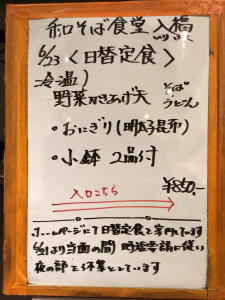 和そば食堂 入福
6/23 <日替定食>
冷温)
野菜かきあげ天 そば うどん
・おにぎり(明太子昆布)
・小鉢 2品付
¥850.-
入口こちら
ホームページにて日替定食を案内しています
より当面の間 時短要請に従い
夜の部を休業としています